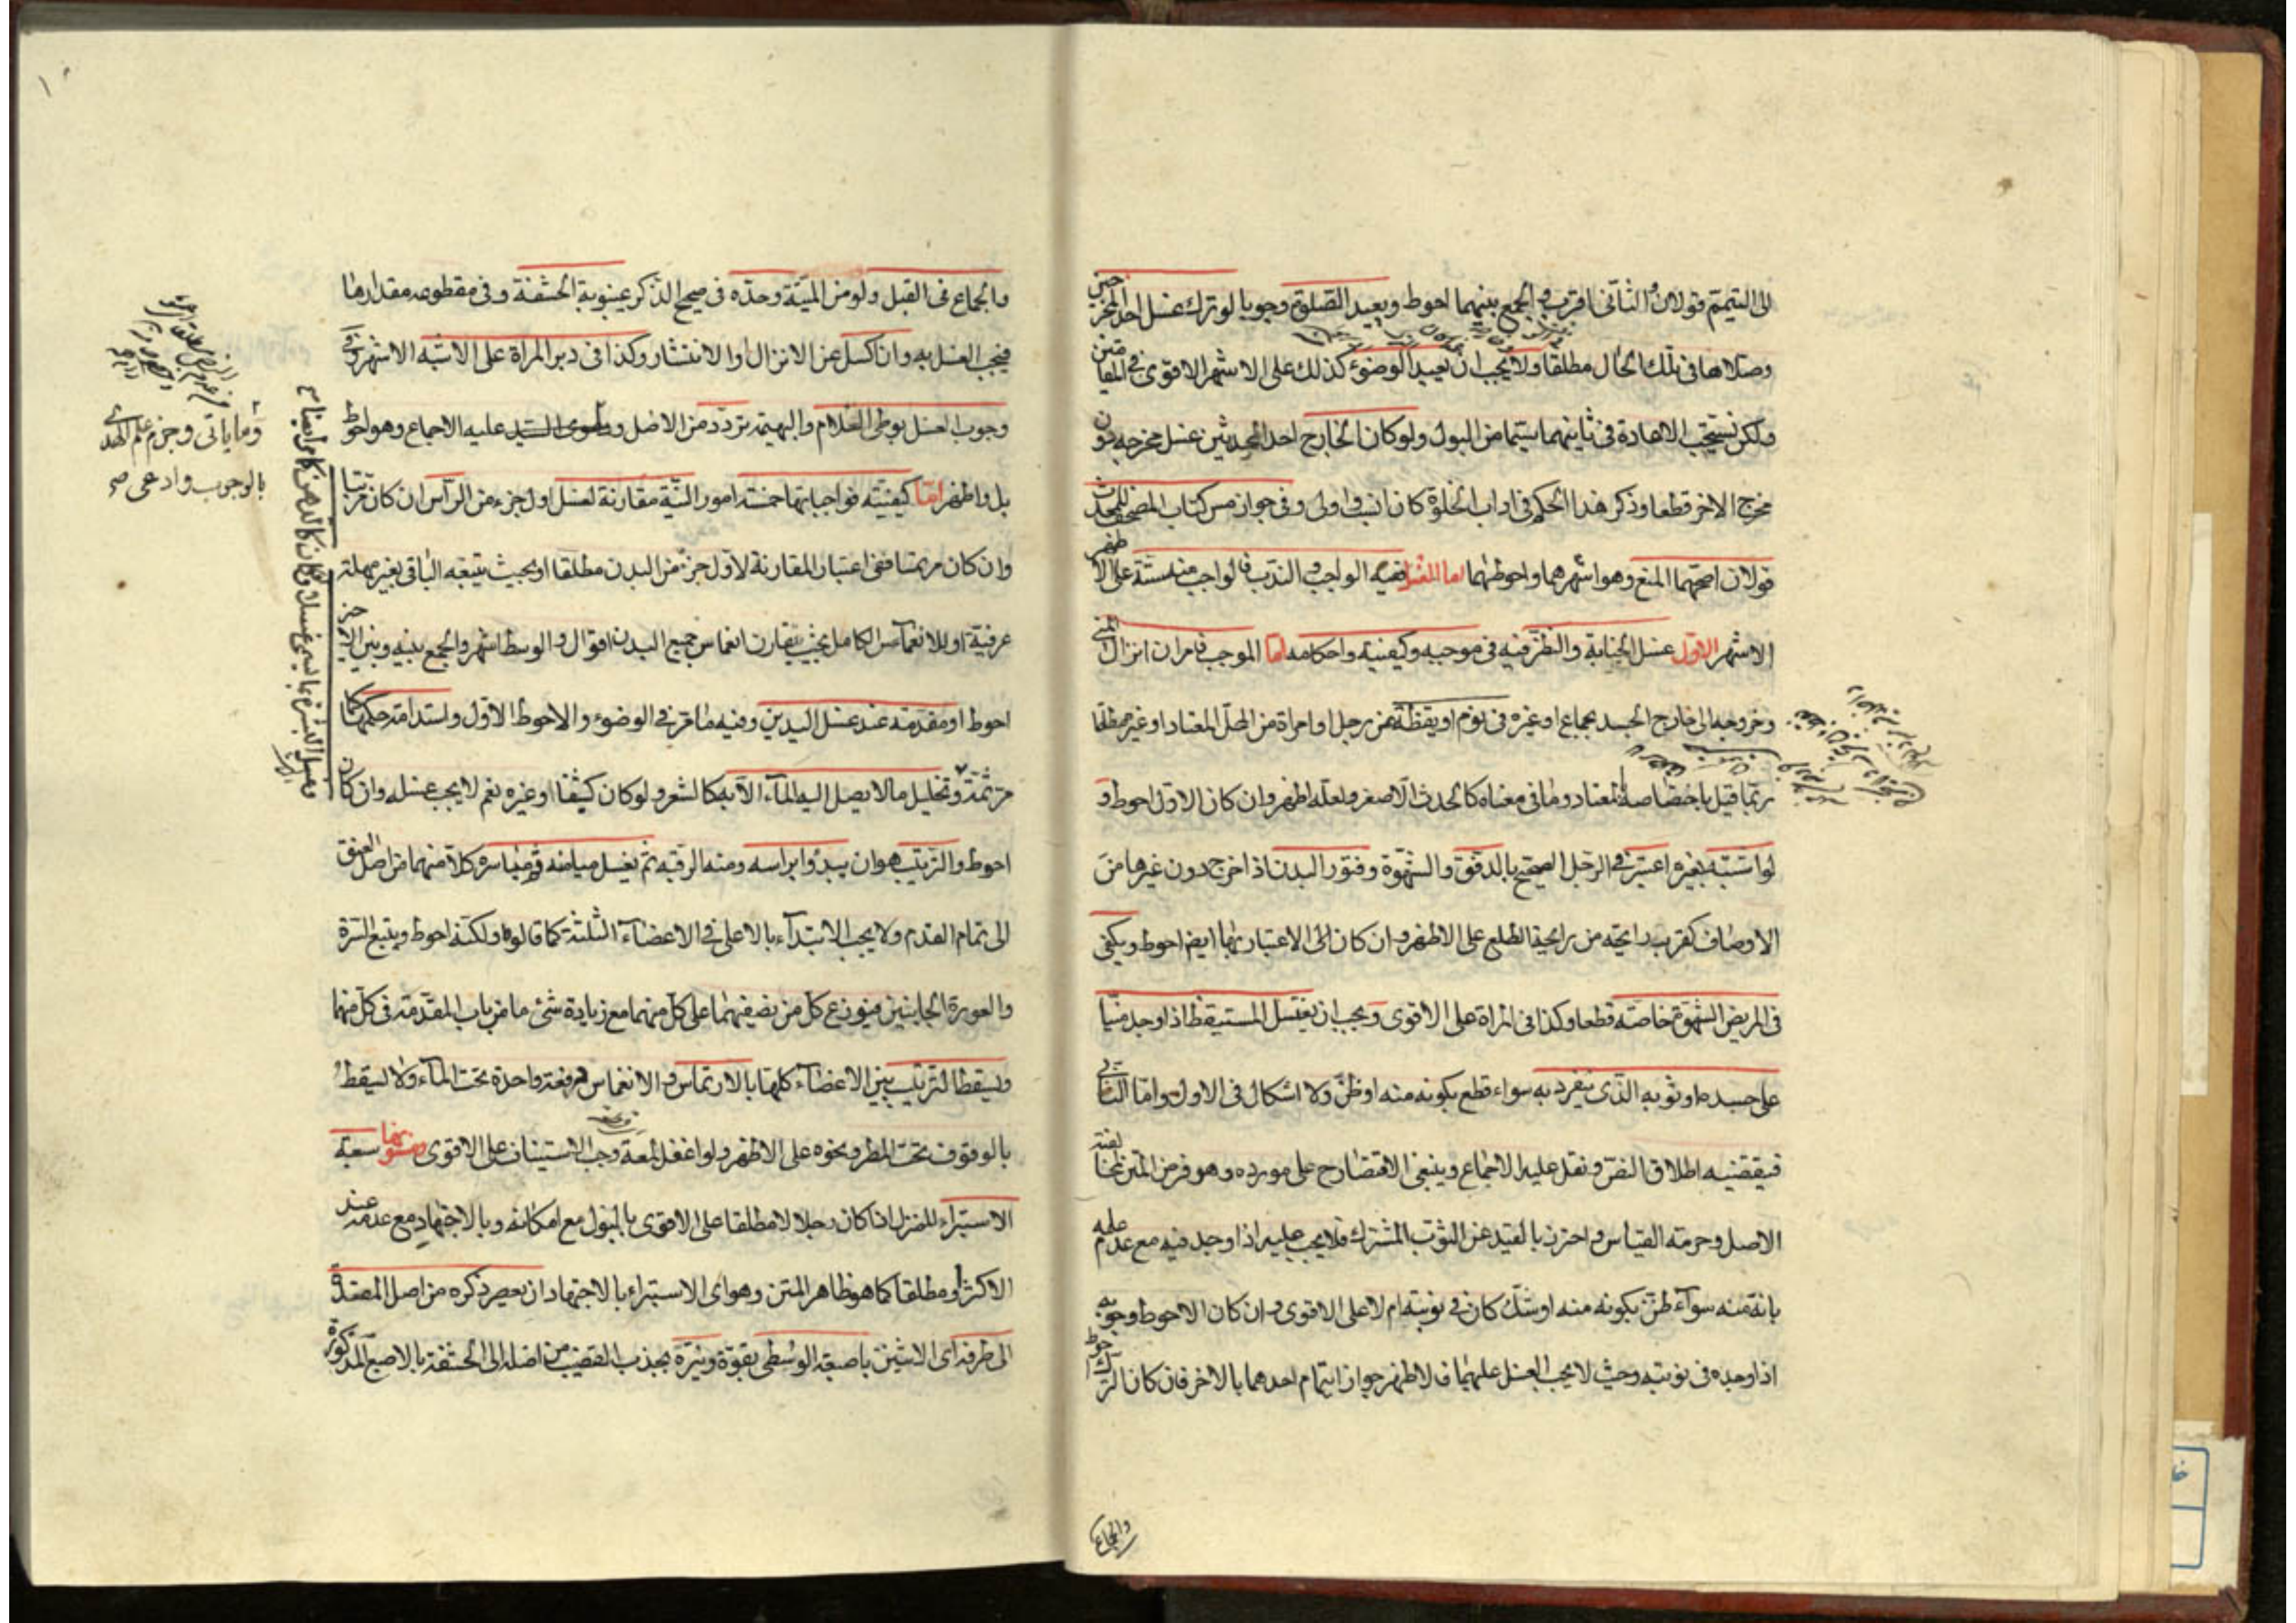 الى التيمم قولان والثاني اقرب والجمع بينهما احوط ويعيد الصلوة وجوبا لو ترك غسل احد المخرجين
وصلاها في تلك الحال مطلقا ولا يجب ان يعيد الوضوء كذلك على الاشهر الاقوى في المقامين
ولكن تستحب الاعادة في ثانيهما سيما من البول ولو كان الخارج احد الحدثين غسل مخرجه دون
مخرج الاخر قطعا وذكر هذا الحكم في اداب الخلوة كان انسب واولى وفي جواز مس كتاب المصحف للمحدث
قولان اصحهما المنع وهو اشهرهما واحوطهما اما الغسل ففيه الواجب والندب فالواجب منه ستة على الاظهر
الاشهر الاول غسل الجنابة والنظر فيه في موجبه وكيفيته واحكامه اما الموجب فامران انزال المني
وخروجه الى خارج الجسد بجماع او غيره في نوم او يقظة من رجل او امراة من المحل المعتاد او غيره مطلقا
ربما قيل باختصاصه بالمعتاد وما في معناه كالحدث الاصغر ولعله اظهر وان كان الاول احوط و
لو اشتبه بغيره اعتبر في الرجل الصحيح بالدفق والشهوة وفتور البدن اذا خرج دون غيرها من
الاوصاف كقرب رائحته من رائحة الطلع على الاظهر وان كان الاعتبار بها ايضا احوط ويكفي
في المريض الشهوة خاصة قطعا وكذا في المراة على الاقوى ويجب ان يغتسل المستيقظ اذا وجد منيا
على جسده او ثوبه الذي ينفرد به سواء قطع بكونه منه او ظن ولا اشكال في الاول واما الثاني
فيقتضيه اطلاق النص ونقل عليه الاجماع وينبغي الاقتصار على مورده وهو فرض المتن لمخالفته
الاصل وحرمة القياس واحترز بالقيد عن الثوب المشترك فلا يجب عليه اذا وجد فيه مع عدم علمه
بانه منه سوآء ظن بكونه منه او شك كان في نوبته ام لا على الاقوى وان كان الاحوط وجوبه
اذا وجده في نوبته وحيث لا يجب الغسل عليهما فالاظهر جواز ايتمام احدهما بالاخر فان كان الترك احوط
والجماع
والجماع في القبل ولو من الميتة وحده في صحيح الذكر غيبوبة الحشفة وفي مقطوعه مقدارها
فيجب الغسل به وان اكسل عن الانزال او الانتشار وكذا في دبر المراة على الاشبه الاشهر وفي
وجوب الغسل بوطي الغلام والبهيمة تردد من الاصل ودعوى السيد عليه الاجماع وهو احوط
بل واظهر اما كيفيته فواجباتها خمسة امور النية مقارنة لغسل اول جزء من الراس ان كان مرتبا
وان كان مرتمسا ففي اعتبار المقارنة لاول جزء من البدن مطلقا او بحيث يتبعه الباقي بغير مهلة
عرفية او للانغماس الكامل بحيث يقارن انغماس جميع البدن اقوال والوسط اشهر والجمع بينه وبين الاخير
احوط او مقدمة عند غسل اليدين وفيه ما مر في الوضوء والاحوط الاول واستدامة حكمها كما
مر ثمة وتخليل ما لا يصل اليه المآء الا به كالشعر ولو كان كثيفا او غيره نعم لا يجب غسله وان كان
احوط والترتيب هو ان يبدو ابراسه ومنه الرقبة ثم يغسل ميامنه ومياسره كلا منهما من اصل العنق
الى تمام القدم ولا يجب الابتدآء بالاعلى في الاعضآء الثلثة كما قالوه ولكنه احوط ويتبع السرة
والعورة الجانبين فيوزع كل من نصفيهما على كل منهما مع زيادة شئ ما من باب المقدمة في كل منهما
ويسقط الترتيب بين الاعضآء كلها بالارتماس والانغماس دفعة واحدة تحت المآء ولا يسقط
بالوقوف تحت المطر ونحوه على الاظهر ولو اغفل لمعة وجب الاستيناف على الاقوى وسننها سبعة
الاستبراء للمنزل اذا كان رجلا لا مطلقا على الاقوى بالبول مع امكانه وبالاجتهاد مع عدمه عند
الاكثر او مطلقا كما هو ظاهر المتن وهو اى الاستبراء بالاجتهاد ان يعصر ذكره من اصل المقعدة
الى طرفه اى الانثيين باصبعه الوسطى بقوة ونترة بجذب القضيب من اصله الى الحشفة بالاصبع المذكورة
وما ياتي وجزم علم الهدى
بالوجوب وادعى صح